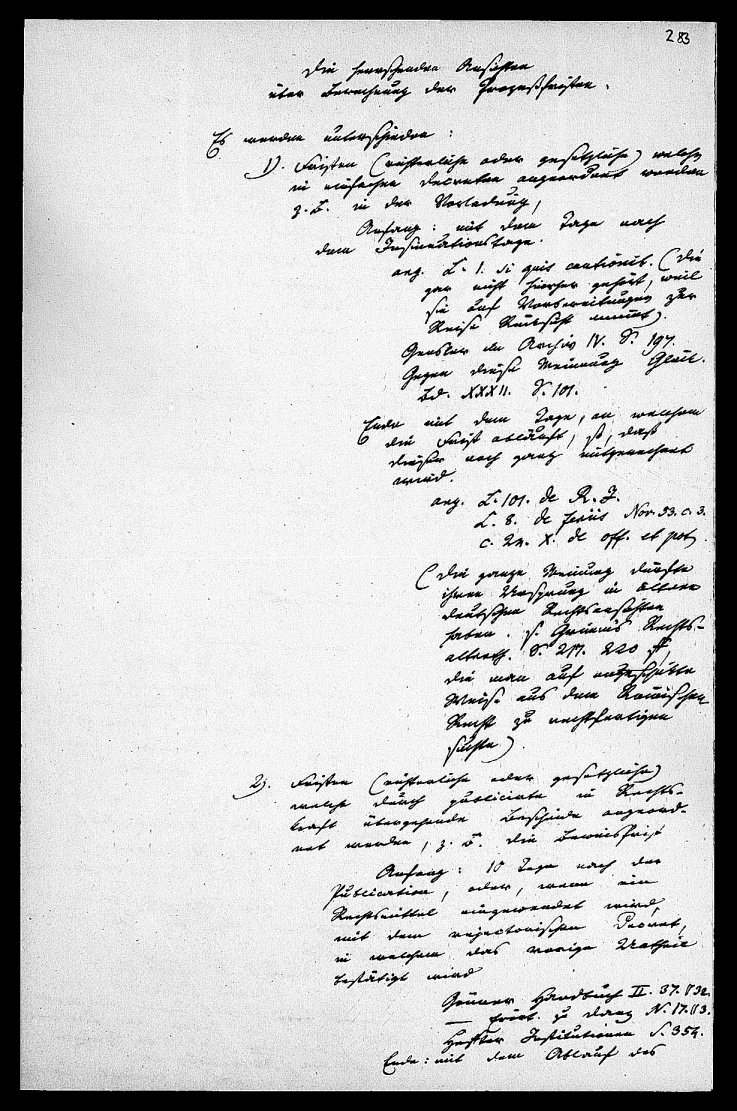 283
Die herrschenden Ansichten
über Berechnung der Prozeßfristen.
Es werden unterschieden:
1). Fristen (richterliche oder gesetzliche) welche
in einfachen Decreten angeordnet werden
z. B. in der Vorladung,
Anfang: mit dem Tage nach
dem Insinuationstage.
arg. L. 1. si quis cautionib. (die
gar nicht hierher gehört, weil
sie auf Vorbereitungen zur
Reise Rücksicht nimmt).
Gensler im Archiv IV. S. 197.
Gegen diese Meinung Glück.
Bd. XXXII. S. 101.
Ende mit dem Tage, an welchem
die Frist abläuft, so, daß
dieser noch ganz mitgerechnet
wird.
arg. L. 101. de R. J.
L. 8. de feriis Nov. 53. c. 3.
c. 24. X. de off. et pot.
(Die ganze Meinung dürfte
ihren Ursprung in älteren
deutschen Rechtsansichten
haben. s. Grimms Rechts-
alterth. S. 217. 220 ff,
die man auf
Weise aus dem Römischen
Recht zu rechtfertigen
suchte).
2). Fristen (richterliche oder gesetzliche)
welche durch publicirte in Rechts-
kraft übergehende Bescheide angeord-
net werden, z. B. die Beweisfrist
Anfang: 10 Tage nach der
Publication, oder, wenn ein
Rechtsmittel eingewendet wird,
mit dem rejectorischen Decret,
in welchem das vorige Urtheil
bestätigt wird
Gönner Handbuch II. 37.
— zu Danz N. 17.
Heffter Institutionen S. 354.
Ende: mit dem Ablauf des